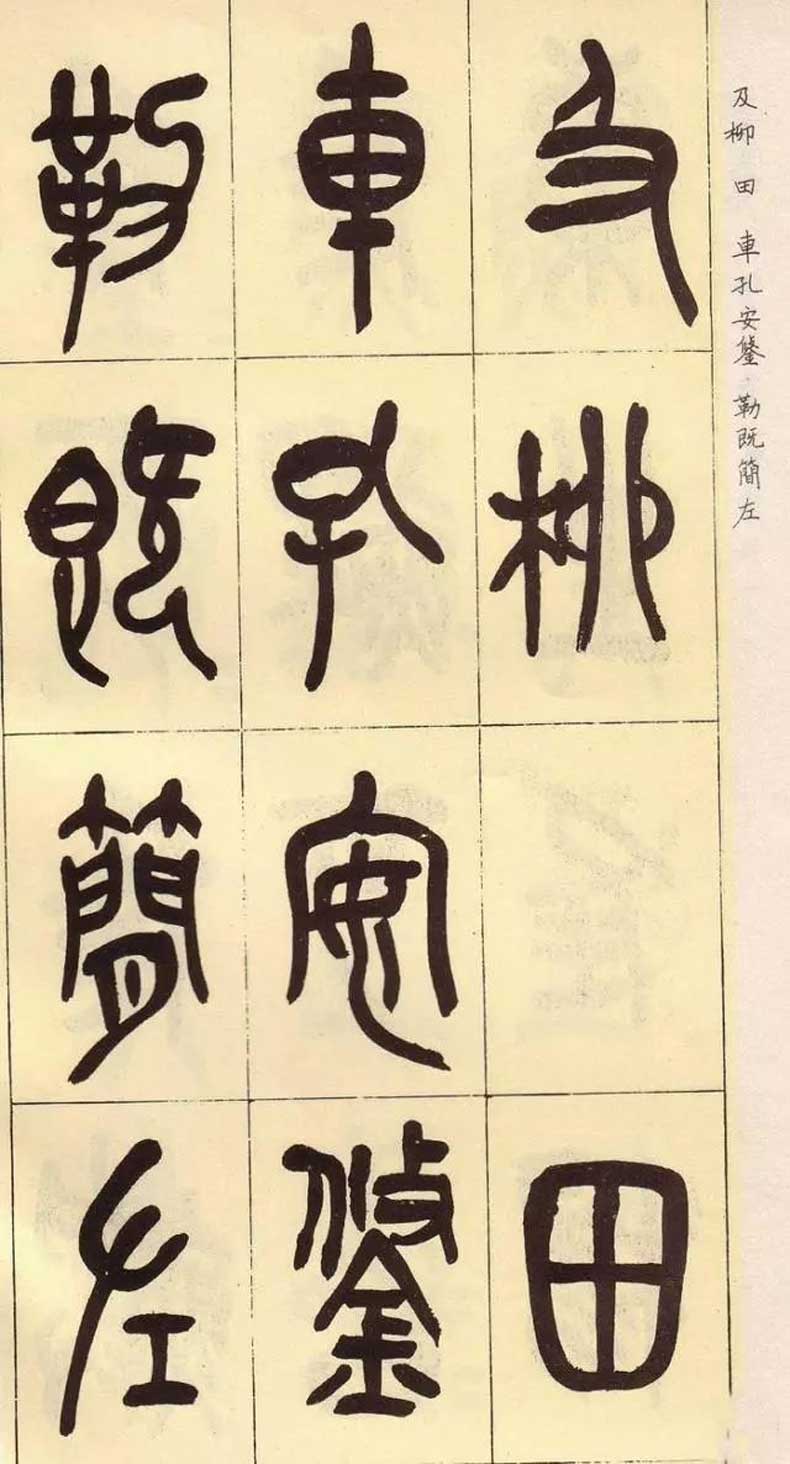 及柳田
車孔安鋚
勒既簡左
及柳 田 車孔安鋚 勒既簡左